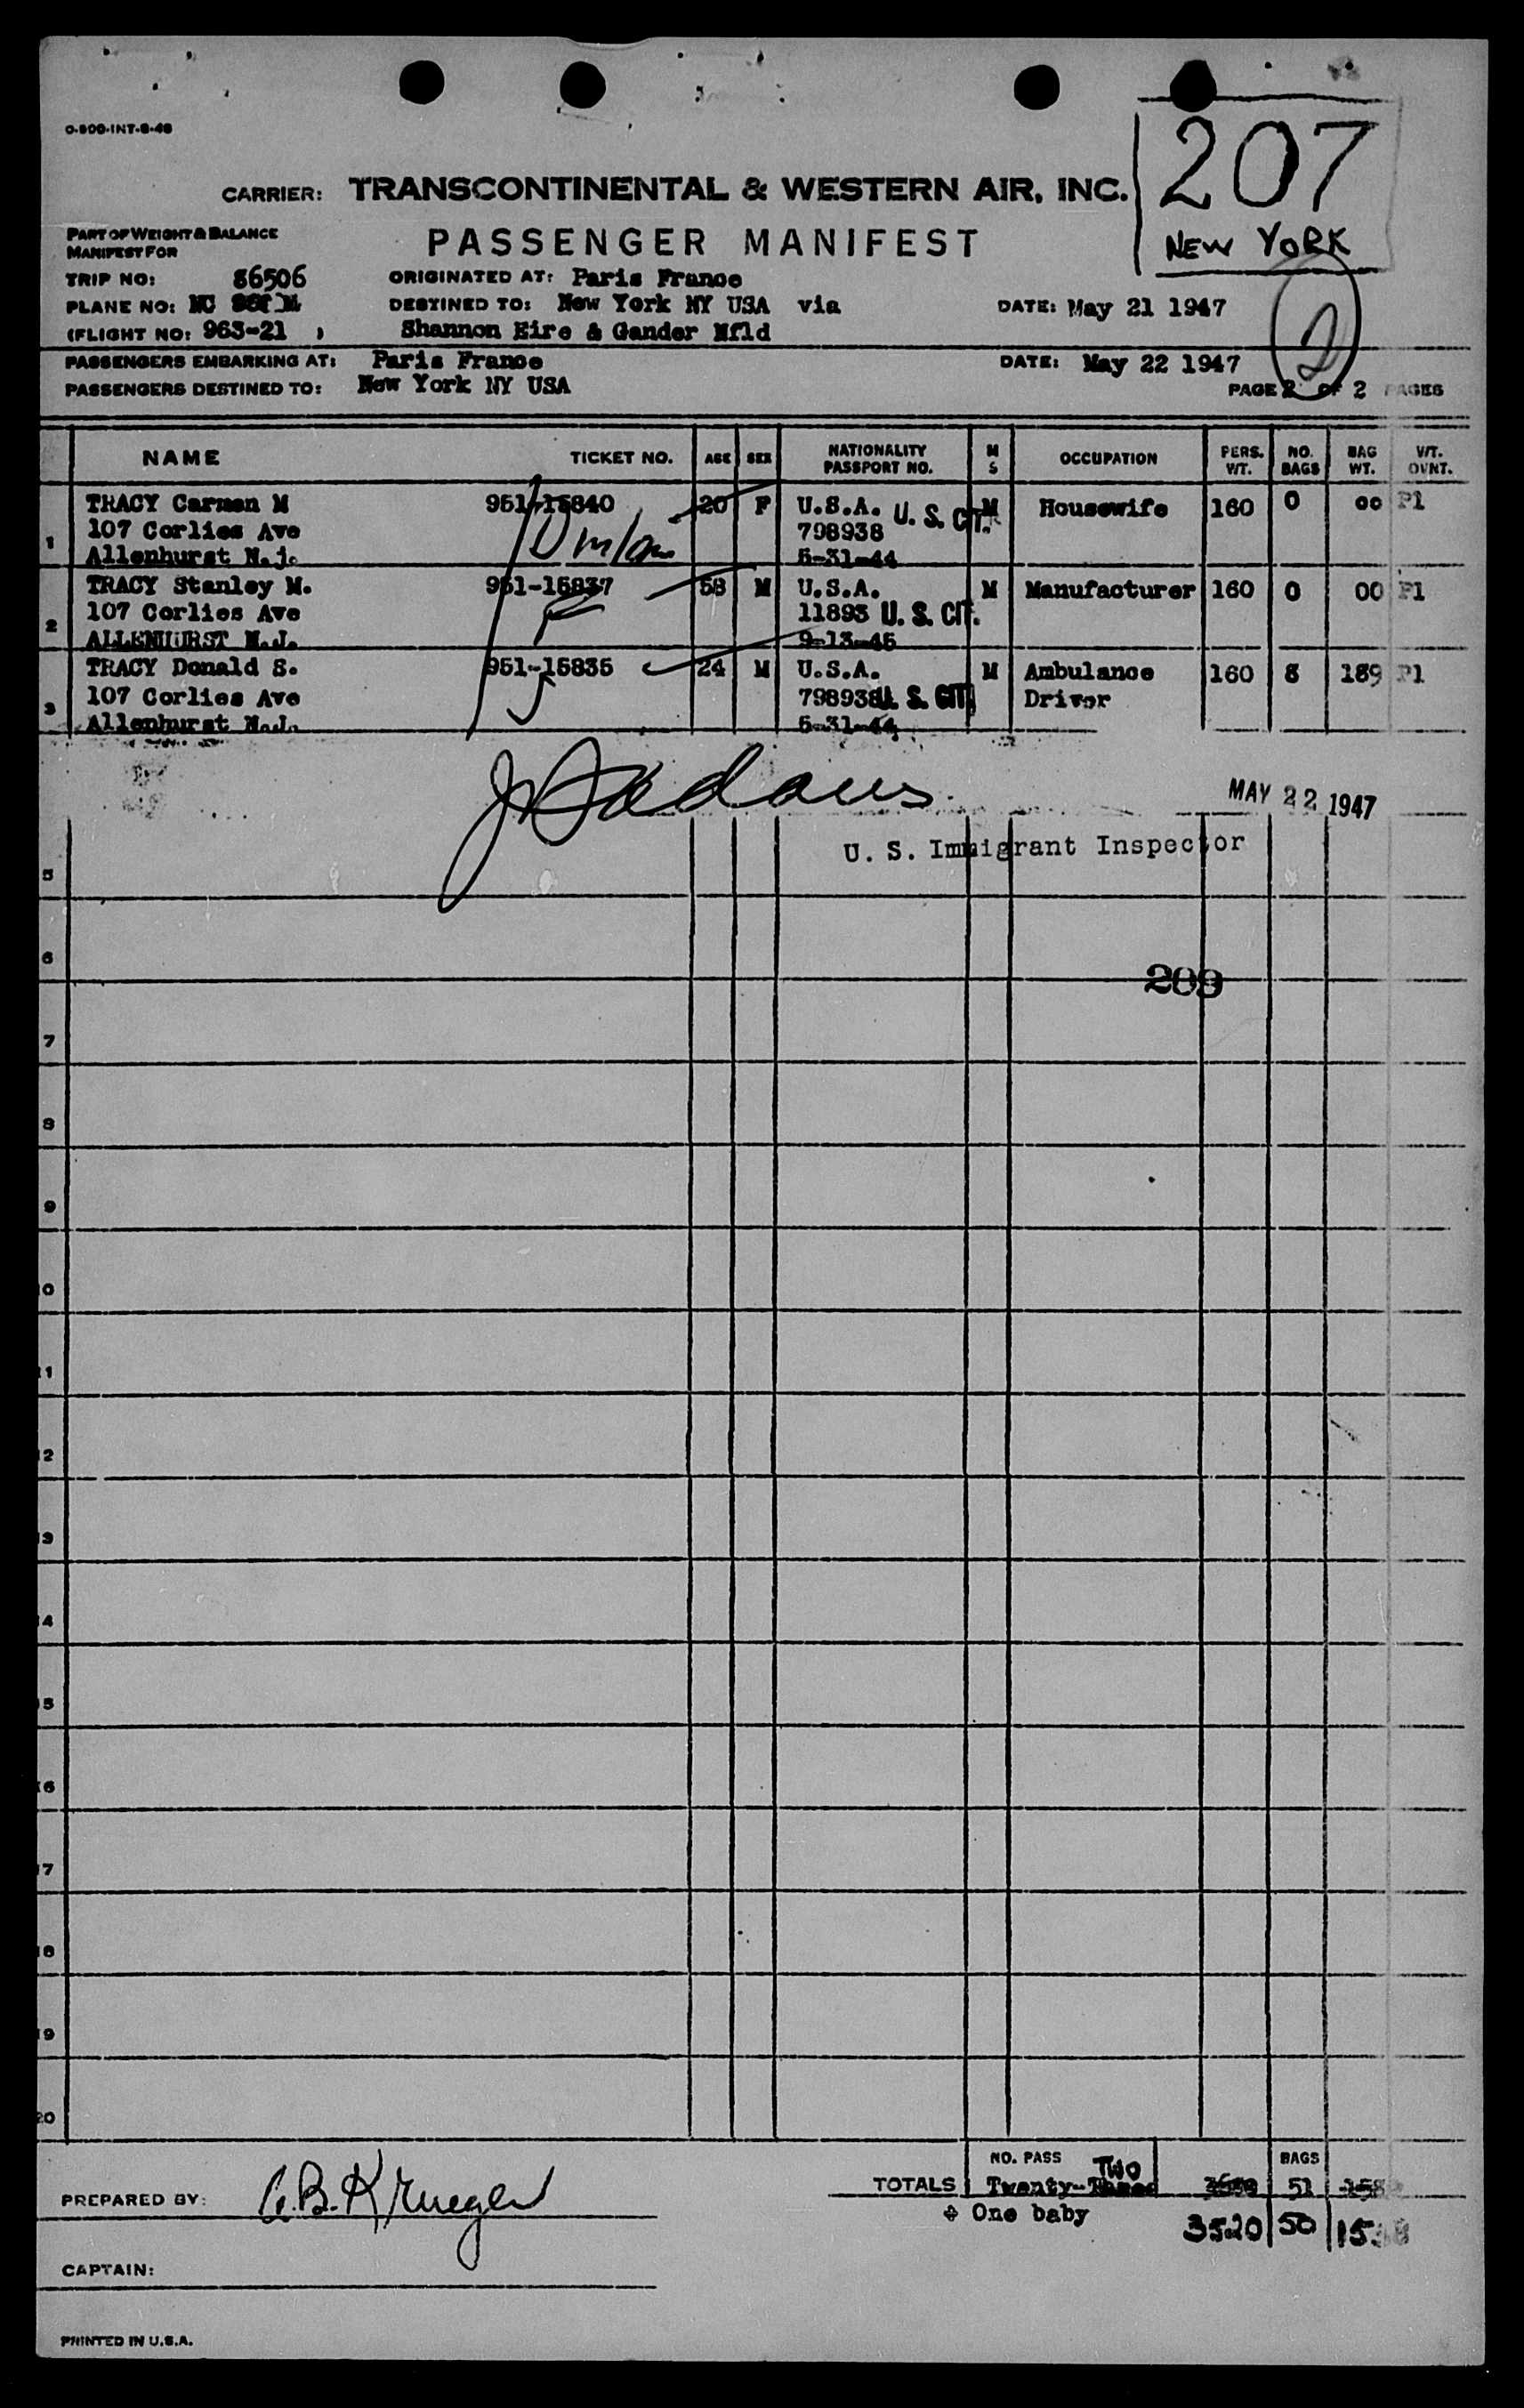 O-800-INT-8-46
207
NEW YORK
CARRIER: TRANSCONTINENTAL & WESTERN AIR, INC.
PART OF WEIGHT & BALANCE
MANIFEST FOR
PASSENGER MANIFEST
TRIP NO: 86506 ORIGINATED AT: Paris France
PLANE NO: NC DESTINED TO: New York NY USA via DATE: May 21 1947
(FLIGHT NO: 963-21 ) Shannon Eire & Gander Nfld
2
PASSENGERS EMBARKING AT: Paris France DATE: May 22 1947
PASSENGERS DESTINED TO: New York NY USA PAGE 2 OF 2 PAGES
NAME TICKET NO. AGE SEX NATIONALITY PASSPORT NO. M S OCCUPATION PERS. WT. NO. BAGS BAG WT. WT. OVNT.
TRACY Carmen M 951-15840 20 F U.S.A. U. S. CIT. M Housewife 160 0 00 P1
107 Corlies Ave 798938
1 Allenhurst N.j. 5-31-44
TRACY Stanley M. 951-15837 58 M U.S.A. M Manufacturer 160 0 00 P1
107 Corlies Ave 11893 U. S. CIT.
2 ALLENHURST N.J. 9-13-45
TRACY Donald S. 951-15835 24 M U.S.A. M Ambulance 160 8 189 P1
107 Corlies Ave 798938 U. S. CIT. Driver
3 Allenhurst N.J. 5-31-44
MAY 22 1947
U. S. Immigrant Inspector
5
6
209
7
8
9
10
11
12
13
14
15
16
17
18
19
20
NO. PASS BAGS
PREPARED BY: G.B. Krueger TOTALS Twenty-Three TWO 51
+ One baby 3520 50
CAPTAIN:
PRINTED IN U.S.A.